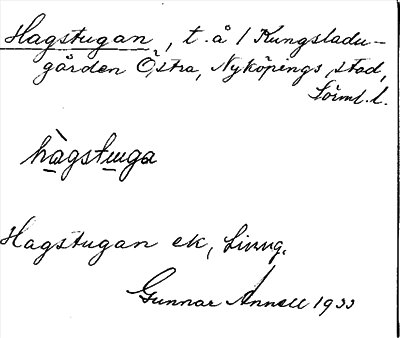 Hagstugan, t. å 1 Kungsladu-
gården Östra, Nyköpings stad,
Sörml. l.
hàgstuga
Hagstugan ek,
Gunnar Annell 1933